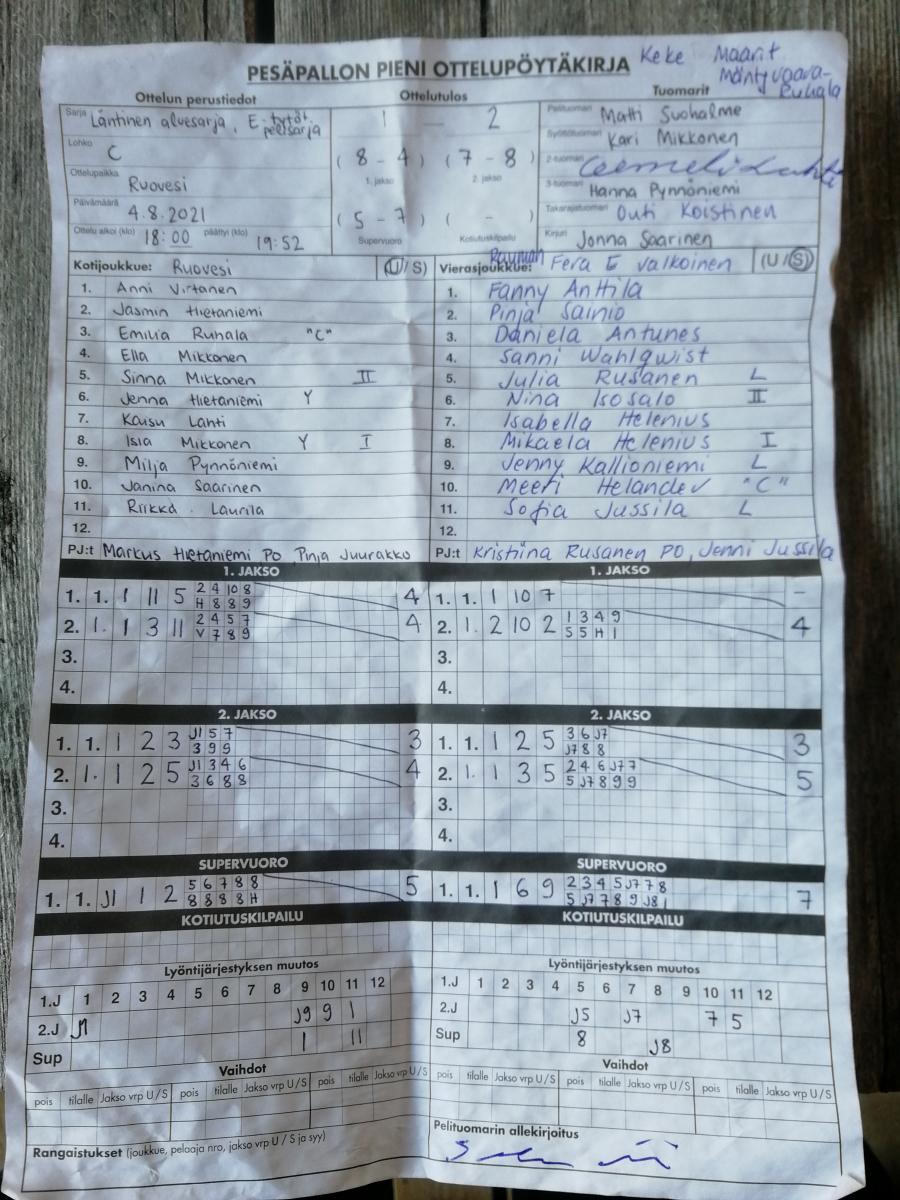 PESÄPALLON PIENI OTTELUPÖYTÄKIRJA Keke Maarit
Mäntyvaara-
Ruhala
Ottelun perustiedot Ottelutulos Tuomarit
Sarja Läntinen aluesarja, E-tytöt
pelisarja
Lohko C
Ottelupaikka Ruovesi
Päivämäärä 4.8.2021
Ottelu alkoi (klo) 18:00 päättyi (klo) 19:52
1 — 2
(8 - 4) (7 - 8)
1. jakso 2. jakso
(5 - 7) ( - )
Supervuoro Kotiutuskilpailu
Pelituomari Matti Suohalme
Syöttötuomari Kari Mikkonen
2-tuomari Lahti
3-tuomari Hanna Pynnöniemi
Takarajatuomari Outi Koistinen
Kirjuri Jonna Saarinen
Kotijoukkue: Ruovesi (U/S)
1. Anni Virtanen
2. Jasmin Hietaniemi
3. Emilia Ruhala "C"
4. Ella Mikkonen
5. Sinna Mikkonen II
6. Jenna Hietaniemi Y
7. Kaisu Lahti
8. Isla Mikkonen Y I
9. Milja Pynnöniemi
10. Janina Saarinen
11. Riikka Laurila
12.
PJ:t Markus Hietaniemi PO, Pinja Juurakko
Vierasjoukkue: Rauman Fera E valkoinen (U/S)
1. Fanny Anttila
2. Pinja Sainio
3. Daniela Antunes
4. Sanni Wahlqwist
5. Julia Rusanen L
6. Nina Isosalo II
7. Isabella Helenius
8. Mikaela Helenius I
9. Jenny Kallioniemi L
10. Meeri Helander "C"
11. Sofia Jussila L
12.
PJ:t Kristiina Rusanen PO, Jenni Jussila
1. JAKSO
1. 1. 1 11 5 2 4 10 8 4
H 8 8 9
2. 1. 1 3 11 2 4 5 7 4
V 7 8 9
3.
4.
1. JAKSO
1. 1. 1 10 7 -
2. 1. 2 10 2 1 3 4 9 4
5 5 H 1
3.
4.
2. JAKSO
1. 1. 1 2 3 J1 5 7 3
3 9 9
2. 1. 1 2 5 J1 3 4 6 4
3 6 8 8
3.
4.
2. JAKSO
1. 1. 1 2 5 3 6 J7 3
J7 8 8
2. 1. 1 3 5 2 4 6 J7 7 5
5 J7 8 9 9
3.
4.
SUPERVUORO
1. 1. J1 1 2 5 6 7 8 8 5
8 8 8 8 H
SUPERVUORO
1. 1. 1 6 9 2 3 4 5 J7 7 8 7
5 J7 7 8 9 J8 1
KOTIUTUSKILPAILU
KOTIUTUSKILPAILU
Lyöntijärjestyksen muutos
1.J 1 2 3 4 5 6 7 8 9 10 11 12
2.J J1 J9 9 1
Sup 1 11
Lyöntijärjestyksen muutos
1.J 1 2 3 4 5 6 7 8 9 10 11 12
2.J J5 J7 7 5
Sup 8 J8
Vaihdot
pois tilalle Jakso vrp U/S pois tilalle Jakso vrp U/S pois tilalle Jakso vrp U/S
Vaihdot
pois tilalle Jakso vrp U/S pois tilalle Jakso vrp U/S pois tilalle Jakso vrp U/S
Rangaistukset (joukkue, pelaaja nro, jakso vrp U / S ja syy)
Pelituomarin allekirjoitus